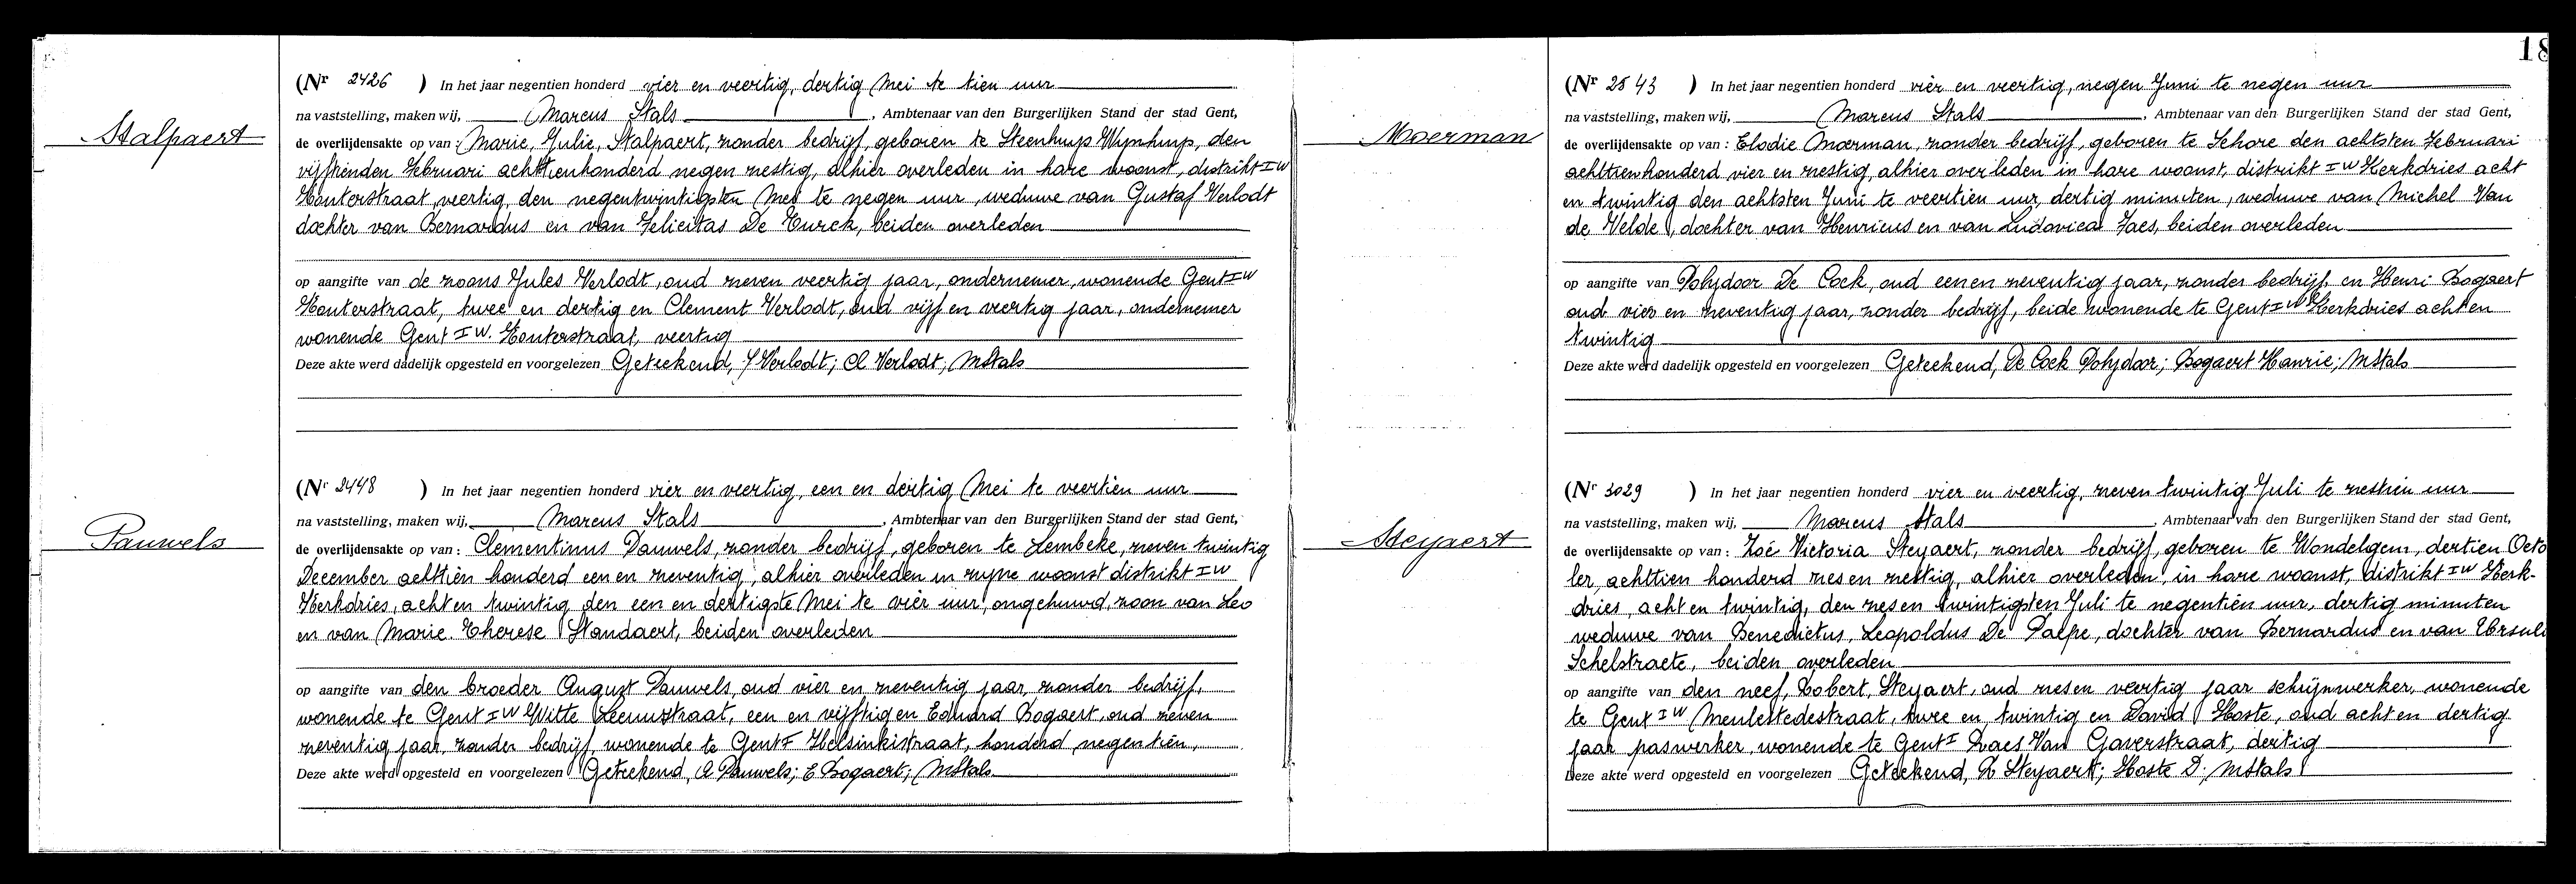 Stalpaert
(Nr 2426 ) In het jaar negentien honderd vier en veertig, dertig Mei te tien uur
na vaststelling, maken wij, Marcus Stals, Ambtenaar van den Burgerlijken Stand der stad Gent,
de overlijdensakte op van: Marie, Julie, Stalpaert, zonder bedrijf, geboren te Steenhuys Wynhuyp, den
vijftienden Februari achttienhonderd negen zestig, alhier overleden in hare woonst, distrikt I W
Houterstraat veertig, den negentwintigsten Mei te negen uur, weduwe van Gustaf Verlodt
dochter van Bernardus en van Felicitas De Turck, beiden overleden
op aangifte van de zoons Jules Verlodt, oud zeven veertig jaar, ondernemer, wonende Gent I W
Houterstraat, twee en dertig en Clement Verlodt, oud vijf en veertig jaar, ondernemer
wonende Gent I W. Houterstraat, veertig
Deze akte werd dadelijk opgesteld en voorgelezen Geteekend, J Verlodt; Cl Verlodt; MStals
Pauwels
(Nr 2448 ) In het jaar negentien honderd vier en veertig, een en dertig Mei te veertien uur
na vaststelling, maken wij, Marcus Stals, Ambtenaar van den Burgerlijken Stand der stad Gent,
de overlijdensakte op van: Clementinus Pauwels, zonder bedrijf, geboren te Lembeke, zeven twintig
December achttien honderd een en zeventig, alhier overleden in zijne woonst distrikt I W
Kerkdries, acht en twintig den een en dertigste Mei te vier uur, ongehuwd, zoon van Leo
en van Marie. Therese Standaert, beiden overleden
op aangifte van den broeder August Pauwels, oud vier en zeventig jaar, zonder bedrijf,
wonende te Gent I W Witte Leeuwstraat, een en vijftig en Eduard Bogaert, oud zeven
zeventig jaar, zonder bedrijf, wonende te Gent I Helsinkistraat, honderd negentien,
Deze akte werd opgesteld en voorgelezen Geteekend, A Pauwels; E Bogaert; MStals
18
Moerman
(Nr 2543 ) In het jaar negentien honderd vier en veertig, negen Juni te negen uur
na vaststelling, maken wij, Marcus Stals, Ambtenaar van den Burgerlijken Stand der stad Gent,
de overlijdensakte op van: Elodie Moerman, zonder bedrijf, geboren te Schore den achtsten Februari
achttienhonderd vier en zestig, alhier overleden in hare woonst, distrikt I W Kerkdries acht
en twintig den achtsten Juni te veertien uur, dertig minuten, weduwe van Michel Van
de Velde, dochter van Henricus en van Ludovica Jaes, beiden overleden
op aangifte van Polydoor De Cock, oud een en zeventig jaar, zonder bedrijf, en Henri Bogaert
oud vier en zeventig jaar, zonder bedrijf, beide wonende te Gent I W Kerkdries acht en
twintig
Deze akte werd dadelijk opgesteld en voorgelezen Geteekend, De Cock Polydoor; Bogaert Hanrie; MStals
Steyaert
(Nr 3029 ) In het jaar negentien honderd vier en veertig, zeven twintig Juli te zestien uur
na vaststelling, maken wij, Marcus Stals, Ambtenaar van den Burgerlijken Stand der stad Gent,
de overlijdensakte op van: Zoé Victoria Steyaert, zonder bedrijf, geboren te Wondelgem, dertien Octo
ber, achttien honderd zes en zestig, alhier overleden, in hare woonst, distrikt I W Kerk-
dries, acht en twintig, den zes en twintigsten Juli te negentien uur, dertig minuten
weduwe van Benedictus, Leopoldus De Paepe, dochter van Bernardus en van Ursula
Schelstraete, beiden overleden
op aangifte van den neef, Robert, Steyaert, oud zes en veertig jaar schrijnwerker, wonende
te Gent I W Meulestedestraat, twee en twintig en David Hoste, oud acht en dertig
jaar paswerker, wonende te Gent I Zaes Van Gaverstraat, dertig
Deze akte werd opgesteld en voorgelezen Geteekend, R Steyaert; Hoste D. MStals